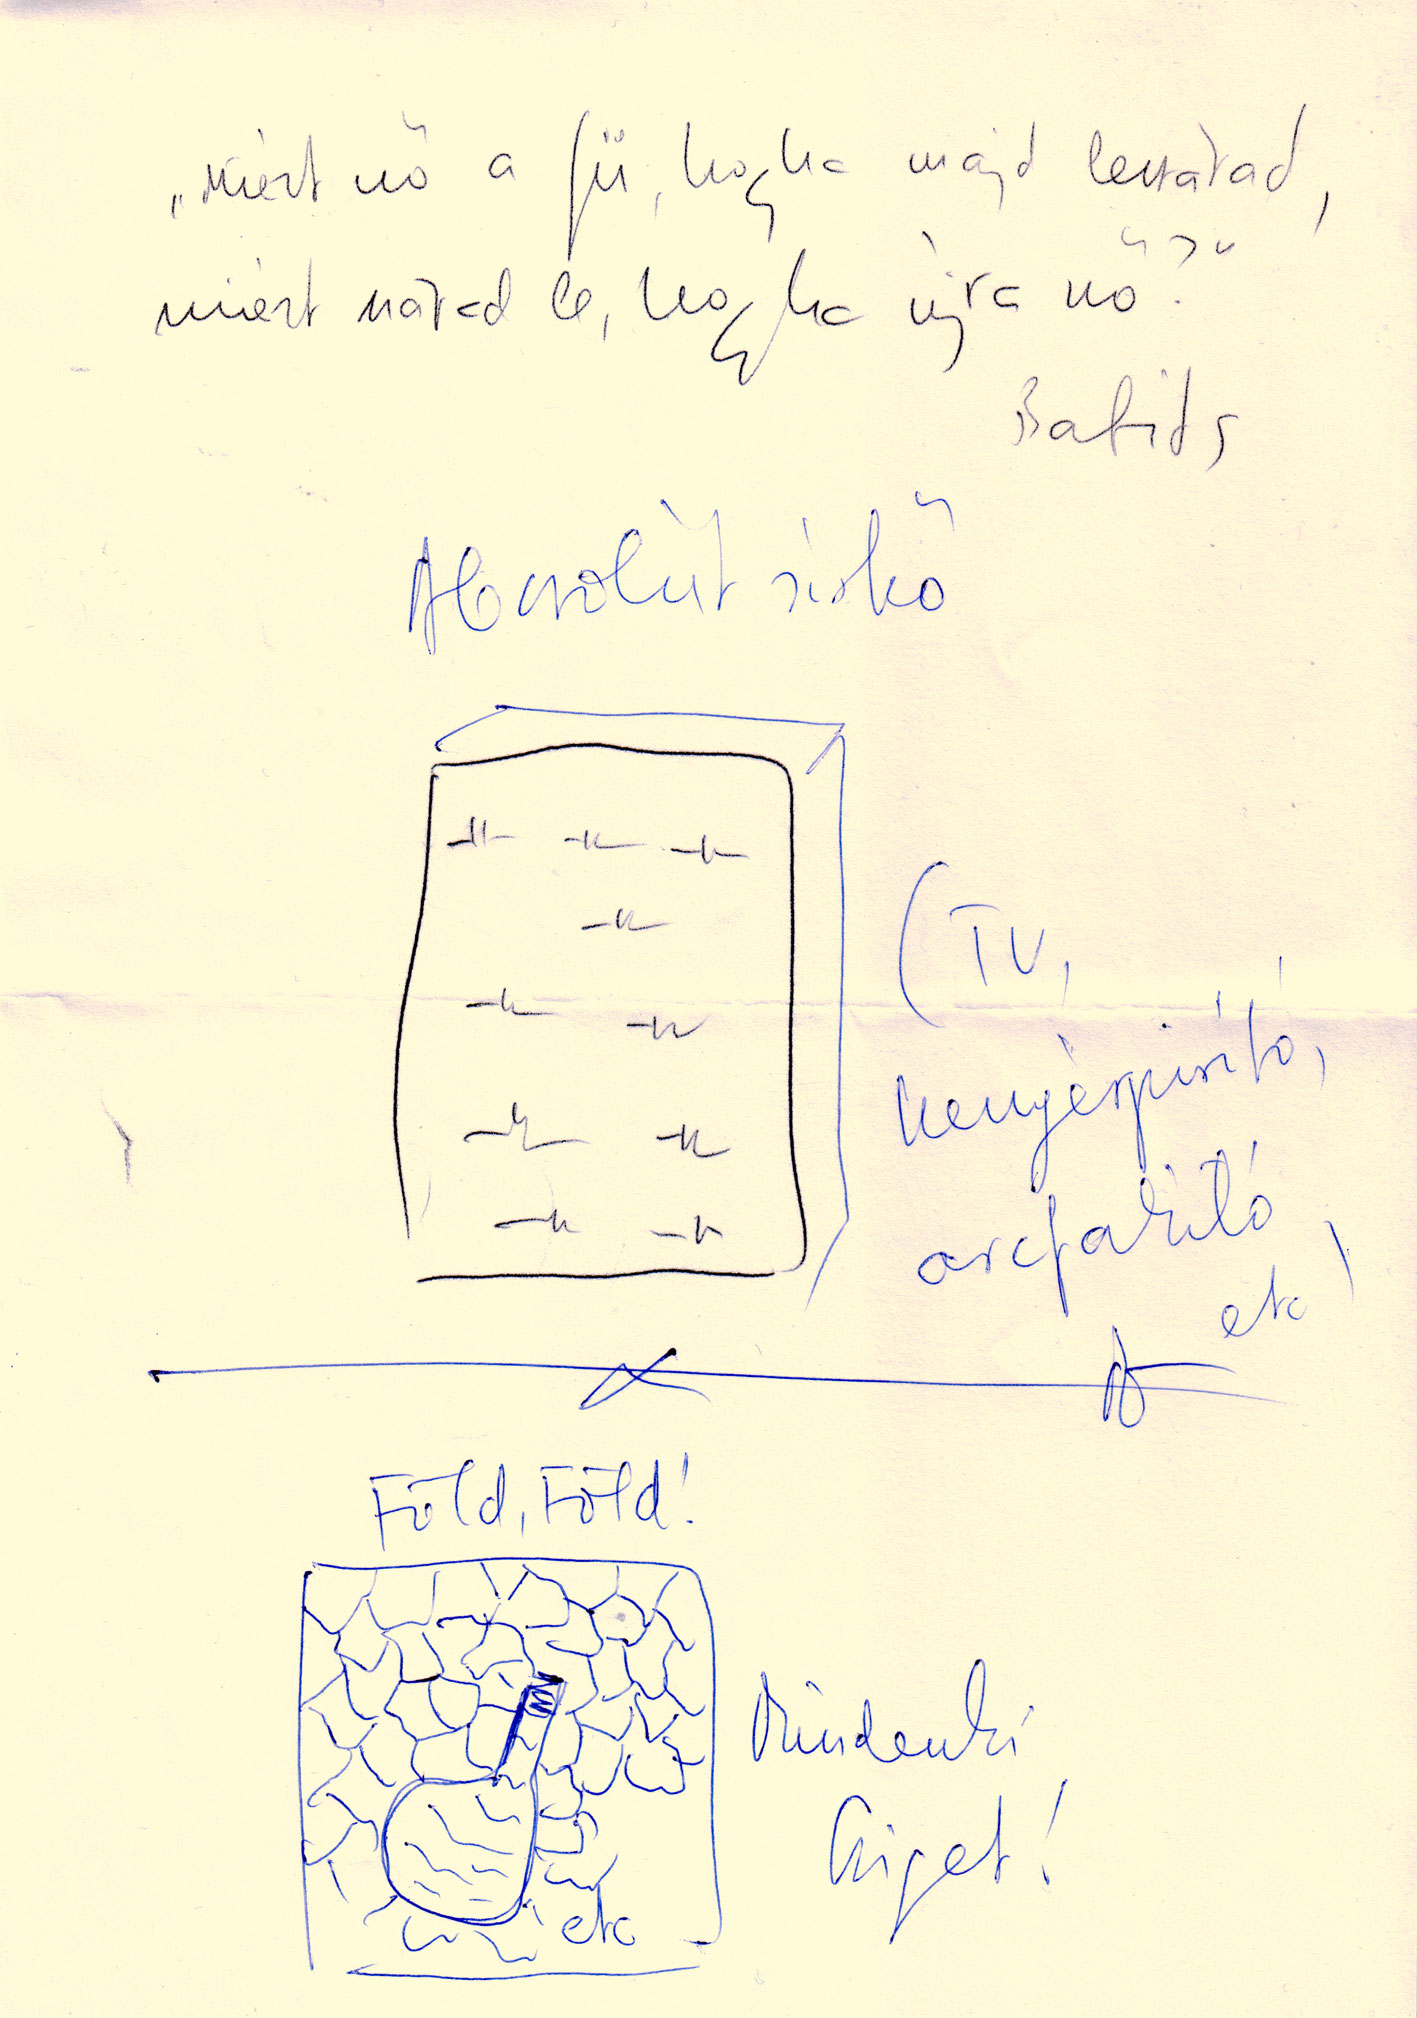 „Miért nő a fü, hogyha majd leszárad,
miért szárad le, hogyha újra nő?"
Babits
Abszolút sírkő
(TV,
kenyérpirító,
arcfakító
etc)
Föld, Föld!
etc
Mindenki
Sziget!